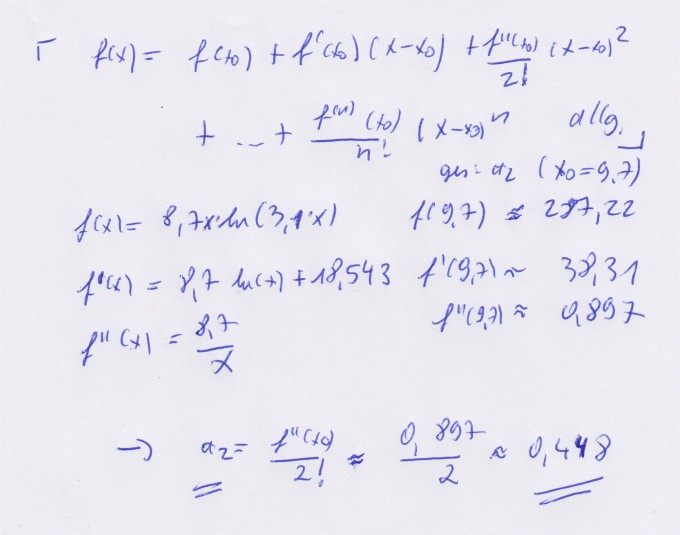 f(x) = f(x0) + f'(x0) (x-x0) + f''(x0)/2! (x-x0)^2
+ ... + f^(n)(x0)/n! (x-x0)^n allg.
ges: a2 (x0=9,7)
f(x) = 8,7x·ln(3,1·x) f(9,7) ≈ 287,22
f'(x) = 8,7 ln(x) + 18,543 f'(9,7) ≈ 38,31
f''(x) = 8,7/x f''(9,7) ≈ 0,897
→ a2 = f''(x0)/2! ≈ 0,897/2 ≈ 0,448